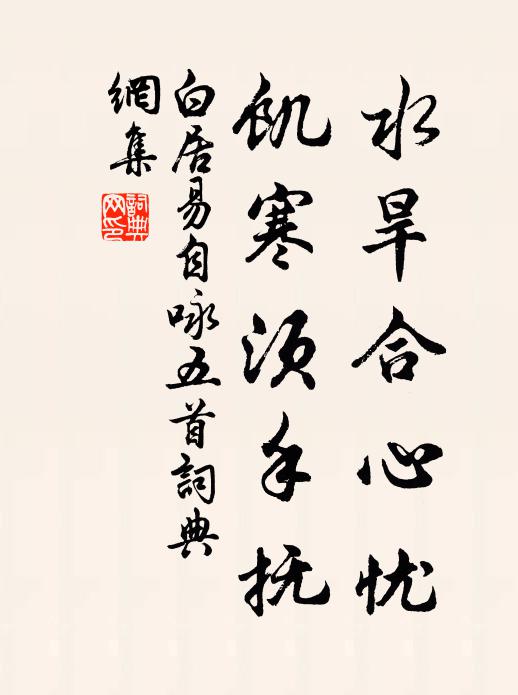 水旱合心忧
飢寒须手抚
白居易自咏五首詞典
網集
詞典
网印